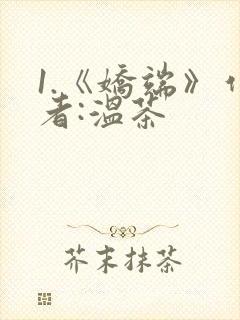 1.《娇端》
者:温茶
芥末抹茶